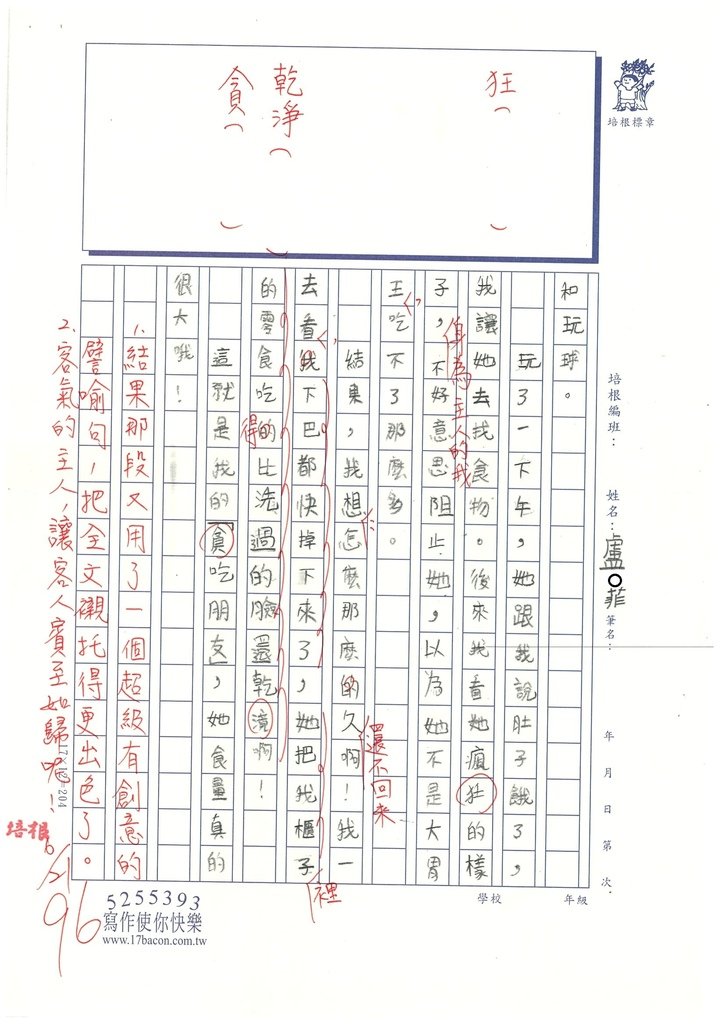 培根標章
狂（　）
乾淨（　）
貪（　）
培根編班：
姓名：盧○菲
筆名：
年 月 日 第 次
和玩球。
玩了一下午，她跟我說肚子餓了，
我讓她去找食物。後來我看她瘋狂的樣
子，不好意思阻止她，以為她不是大胃
身為主人的我
王吃不了那麼多。
，
結果，我想怎麼那麼的久啊！我一
還不回來
去看我下巴都快掉下來了，她把我櫃子
，
裡
的零食吃的比洗過的臉還乾淨啊！
得
這就是我的「貪吃朋友」，她食量真的
很大哦！
1.結果那段又用了一個超級有創意的
譬喻句，把全文襯托得更出色了。
2.客氣的主人，讓客人賓至如歸呢！
17×12=204
培根
6/21
96
5255393
寫作使你快樂
www.17bacon.com.tw
學校
年級